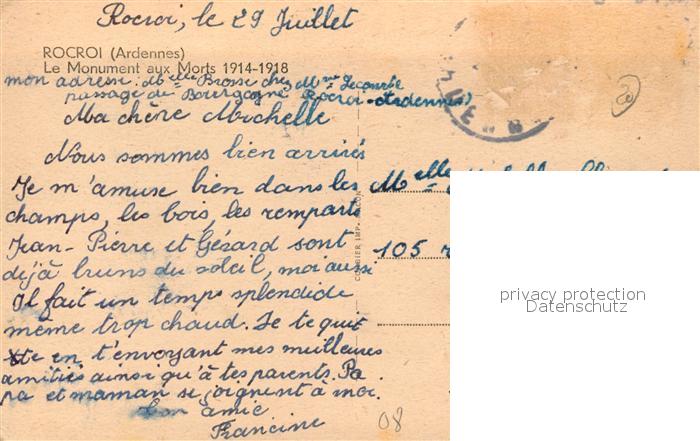 Rocroi, le 29 Juillet
ROCROI (Ardennes)
Le Monument aux Morts 1914-1918
mon adresse: Melle Brosse chez Mme Lecomte
passage du Bourgogne Rocroi-Ardennes)
Ma chère Michelle
Nous sommes bien arrivés
Je m'amuse bien dans les
champs, les bois, les remparts
Jean-Pierre et Gérard sont
déjà bruns du soleil, moi aussi
Il fait un temps splendide
même trop chaud. Je te quit
te en t'envoyant mes meilleures
amitiés ainsi qu'à tes parents. Pa
pa et maman se joignent à moi.
Ton amie
Francine
Melle
105
COMBIER IMP. MACON
privacy protection
Datenschutz
20
08